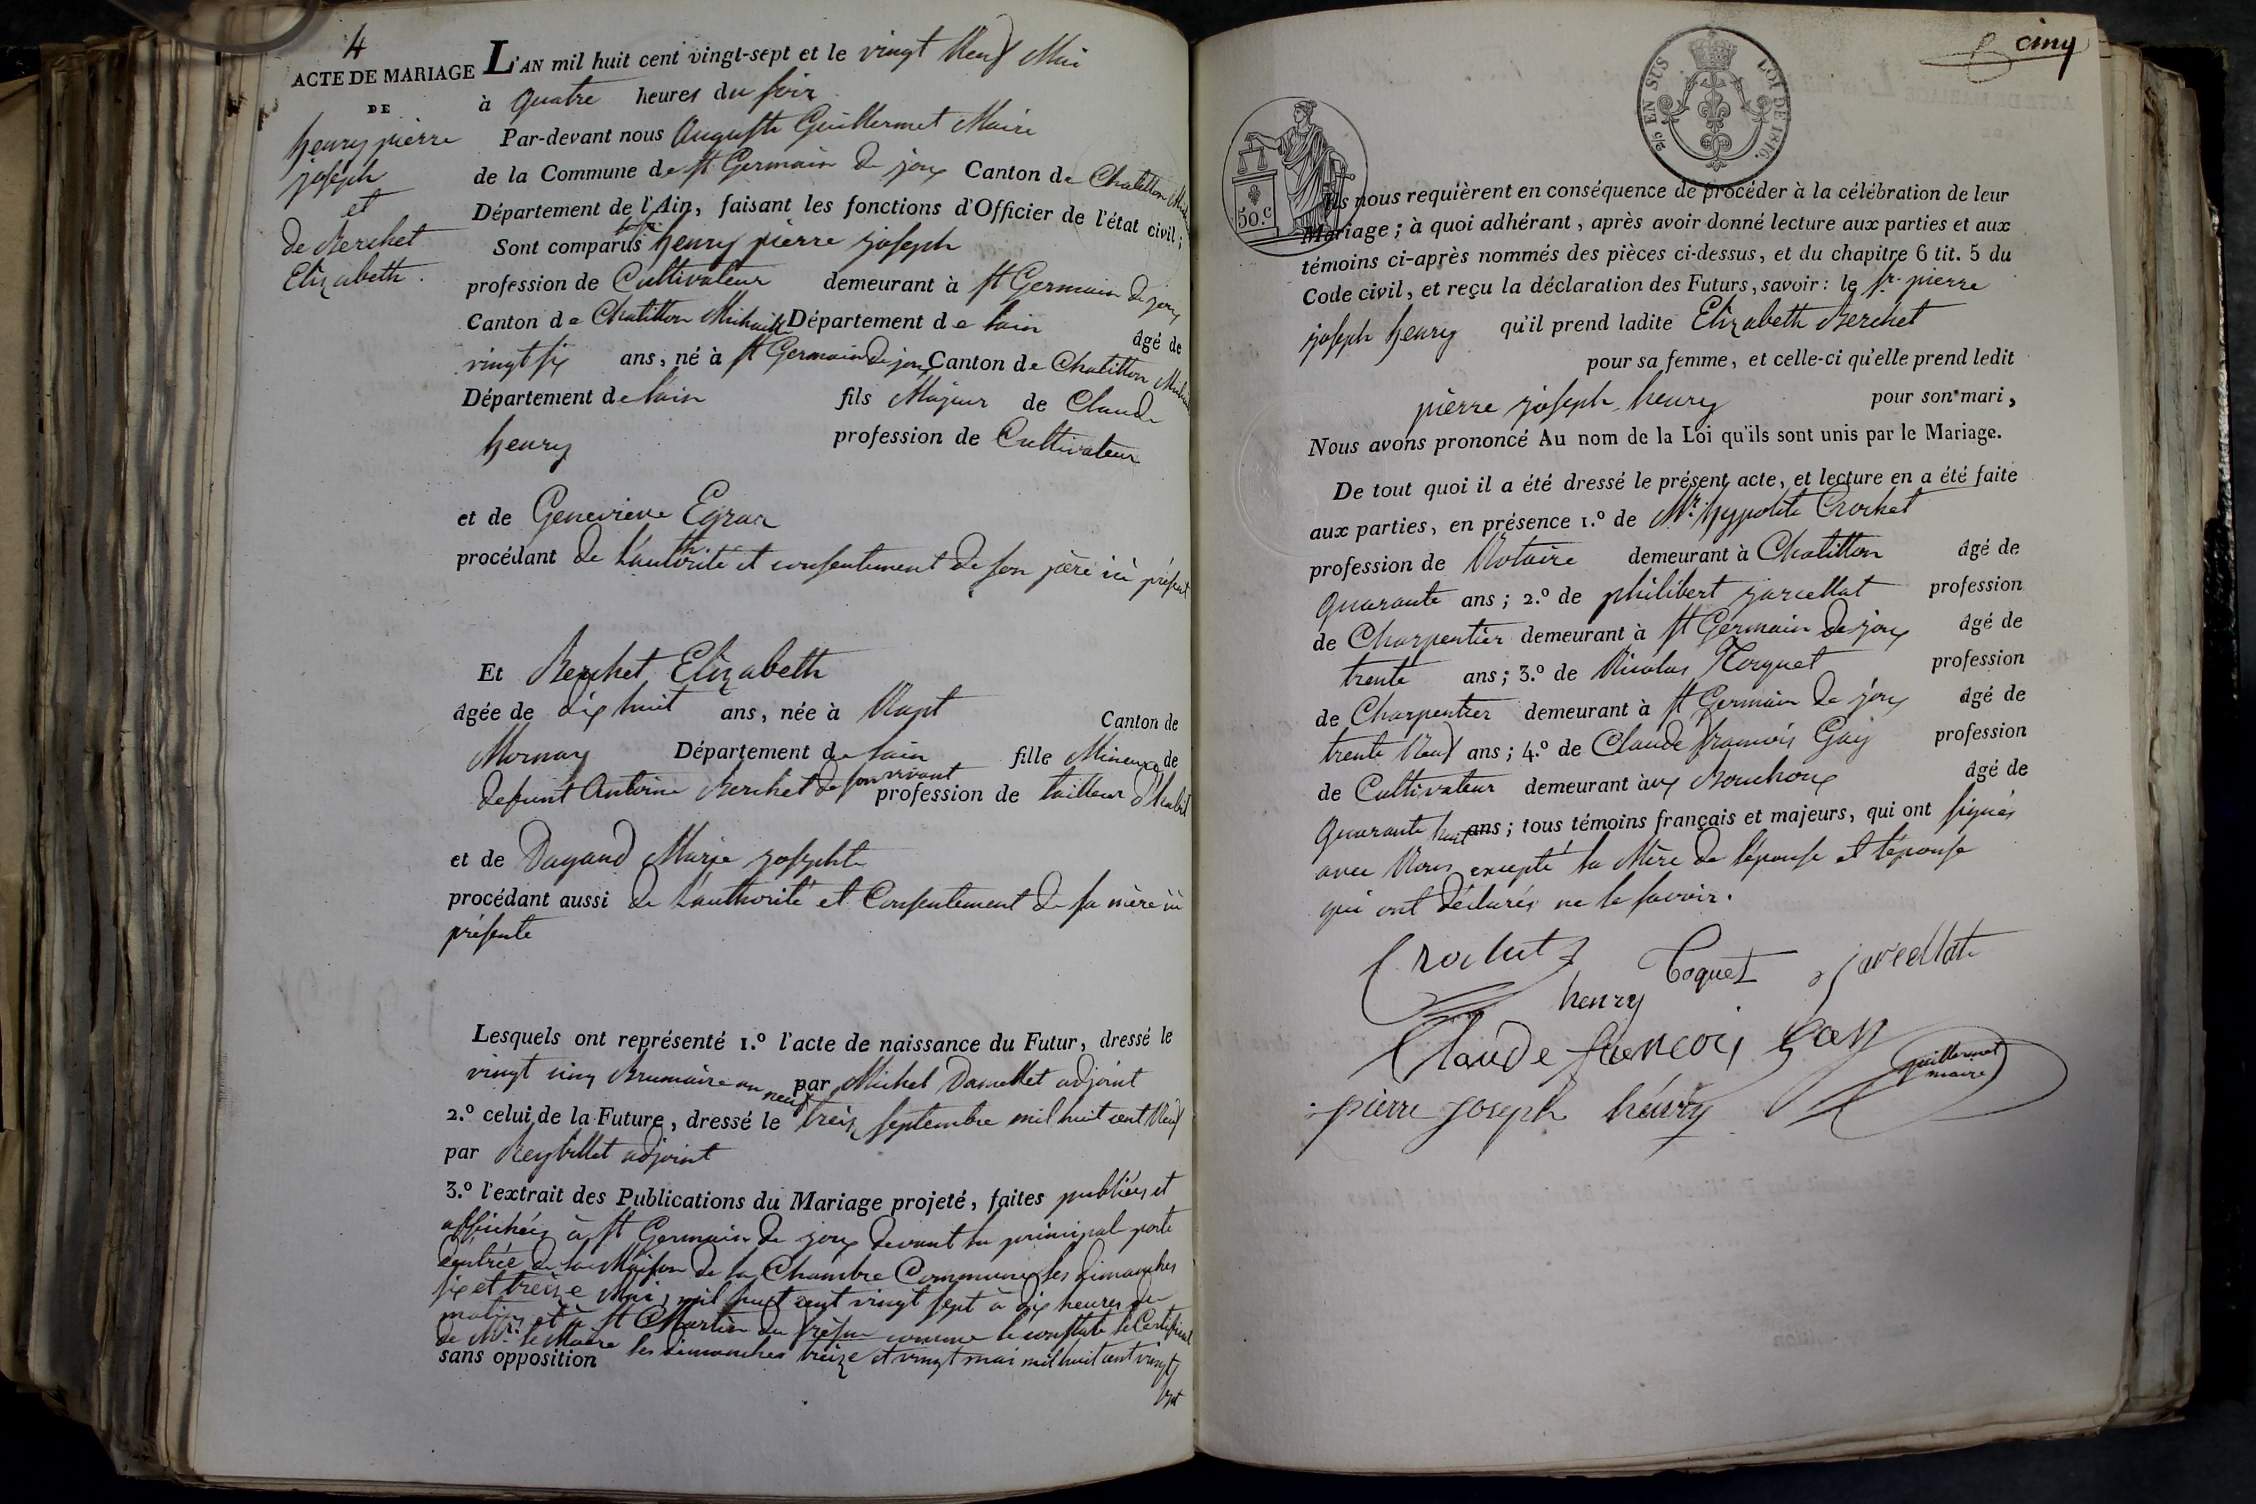 4
ACTE DE MARIAGE
DE
henry pierre
joseph
et
de Berchet
Elizabeth.
L'AN mil huit cent vingt-sept et le vingt Neuf Mai
à quatre heures du soir
Par-devant nous Auguste Guillermet Maire
de la Commune de st Germain de joux Canton de Chatillon
Département de l'Ain, faisant les fonctions d'Officier de l'état civil;
Sont comparus henry pierre joseph
profession de Cultivateur demeurant à st Germain de joux
Canton de Chatillon Michaille Département de lain âgé de
vingt six ans, né à st Germain de joux Canton de Chatillon
Département de lain fils Majeur de Claude
henry profession de Cultivateur
et de Genevieve Egraz
procédant de l'authorité et consentement de son père ici présent
Et Berchet Elizabeth
âgée de dix huit ans, née à Napt Canton de
Mornay Département de lain fille Mineure de
defunt Antoine Berchet de son vivant profession de tailleur d'habit
et de Dagand Marie josephte
procédant aussi de l'authorité et Consentement de sa mère ici
présente
Lesquels ont représenté 1.º l'acte de naissance du Futur, dressé le
vingt cinq Brumaire an neuf par Michel adjoint
2.º celui de la Future, dressé le treize septembre mil huit cent Neuf
par Reybillet adjoint
3.º l'extrait des Publications du Mariage projeté, faites publiées et
affichées à st Germain de joux devant la principal porte
dentrée de la Maison de la Chambre Commune les dimanches
six et treize Mai, mil huit cent vingt sept à dix heures du
matin et à st Martin du frêsne comme le constate le Certificat
de Mr. le Maire les dimanches treize et vingt mai mil huit cent vingt
sans opposition sept
cinq
2/5 EN SUS LOI DE 1816.
50.c
Ils nous requièrent en conséquence de procéder à la célébration de leur
Mariage; à quoi adhérant, après avoir donné lecture aux parties et aux
témoins ci-après nommés des pièces ci-dessus, et du chapitre 6 tit. 5 du
Code civil, et reçu la déclaration des Futurs, savoir: le sr. pierre
joseph henry qu'il prend ladite Elizabeth Berchet
pour sa femme, et celle-ci qu'elle prend ledit
pierre joseph henry pour son mari,
Nous avons prononcé Au nom de la Loi qu'ils sont unis par le Mariage.
De tout quoi il a été dressé le présent acte, et lecture en a été faite
aux parties, en présence 1.º de Mr. hyppolite Crochet
profession de Notaire demeurant à Chatillon âgé de
quarante ans; 2.º de philibert jarcellat profession
de Charpentier demeurant à st Germain de joux âgé de
trente ans; 3.º de Nicolas Tocquet profession
de Charpentier demeurant à st Germain de joux âgé de
trente Neuf ans; 4.º de Claude françois Gay profession
de Cultivateur demeurant aux Bouchoux âgé de
quarante huit ans; tous témoins français et majeurs, qui ont signés
avec Nous, excepté la Mère de l'épouse et l'épouse
qui ont déclarés ne le savoir.
Crochet
Toquet
jarcellat
henry
Claude francois Gay
guillermet
maire
pierre joseph henry